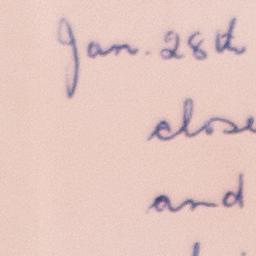 Jan. 28th
close
and